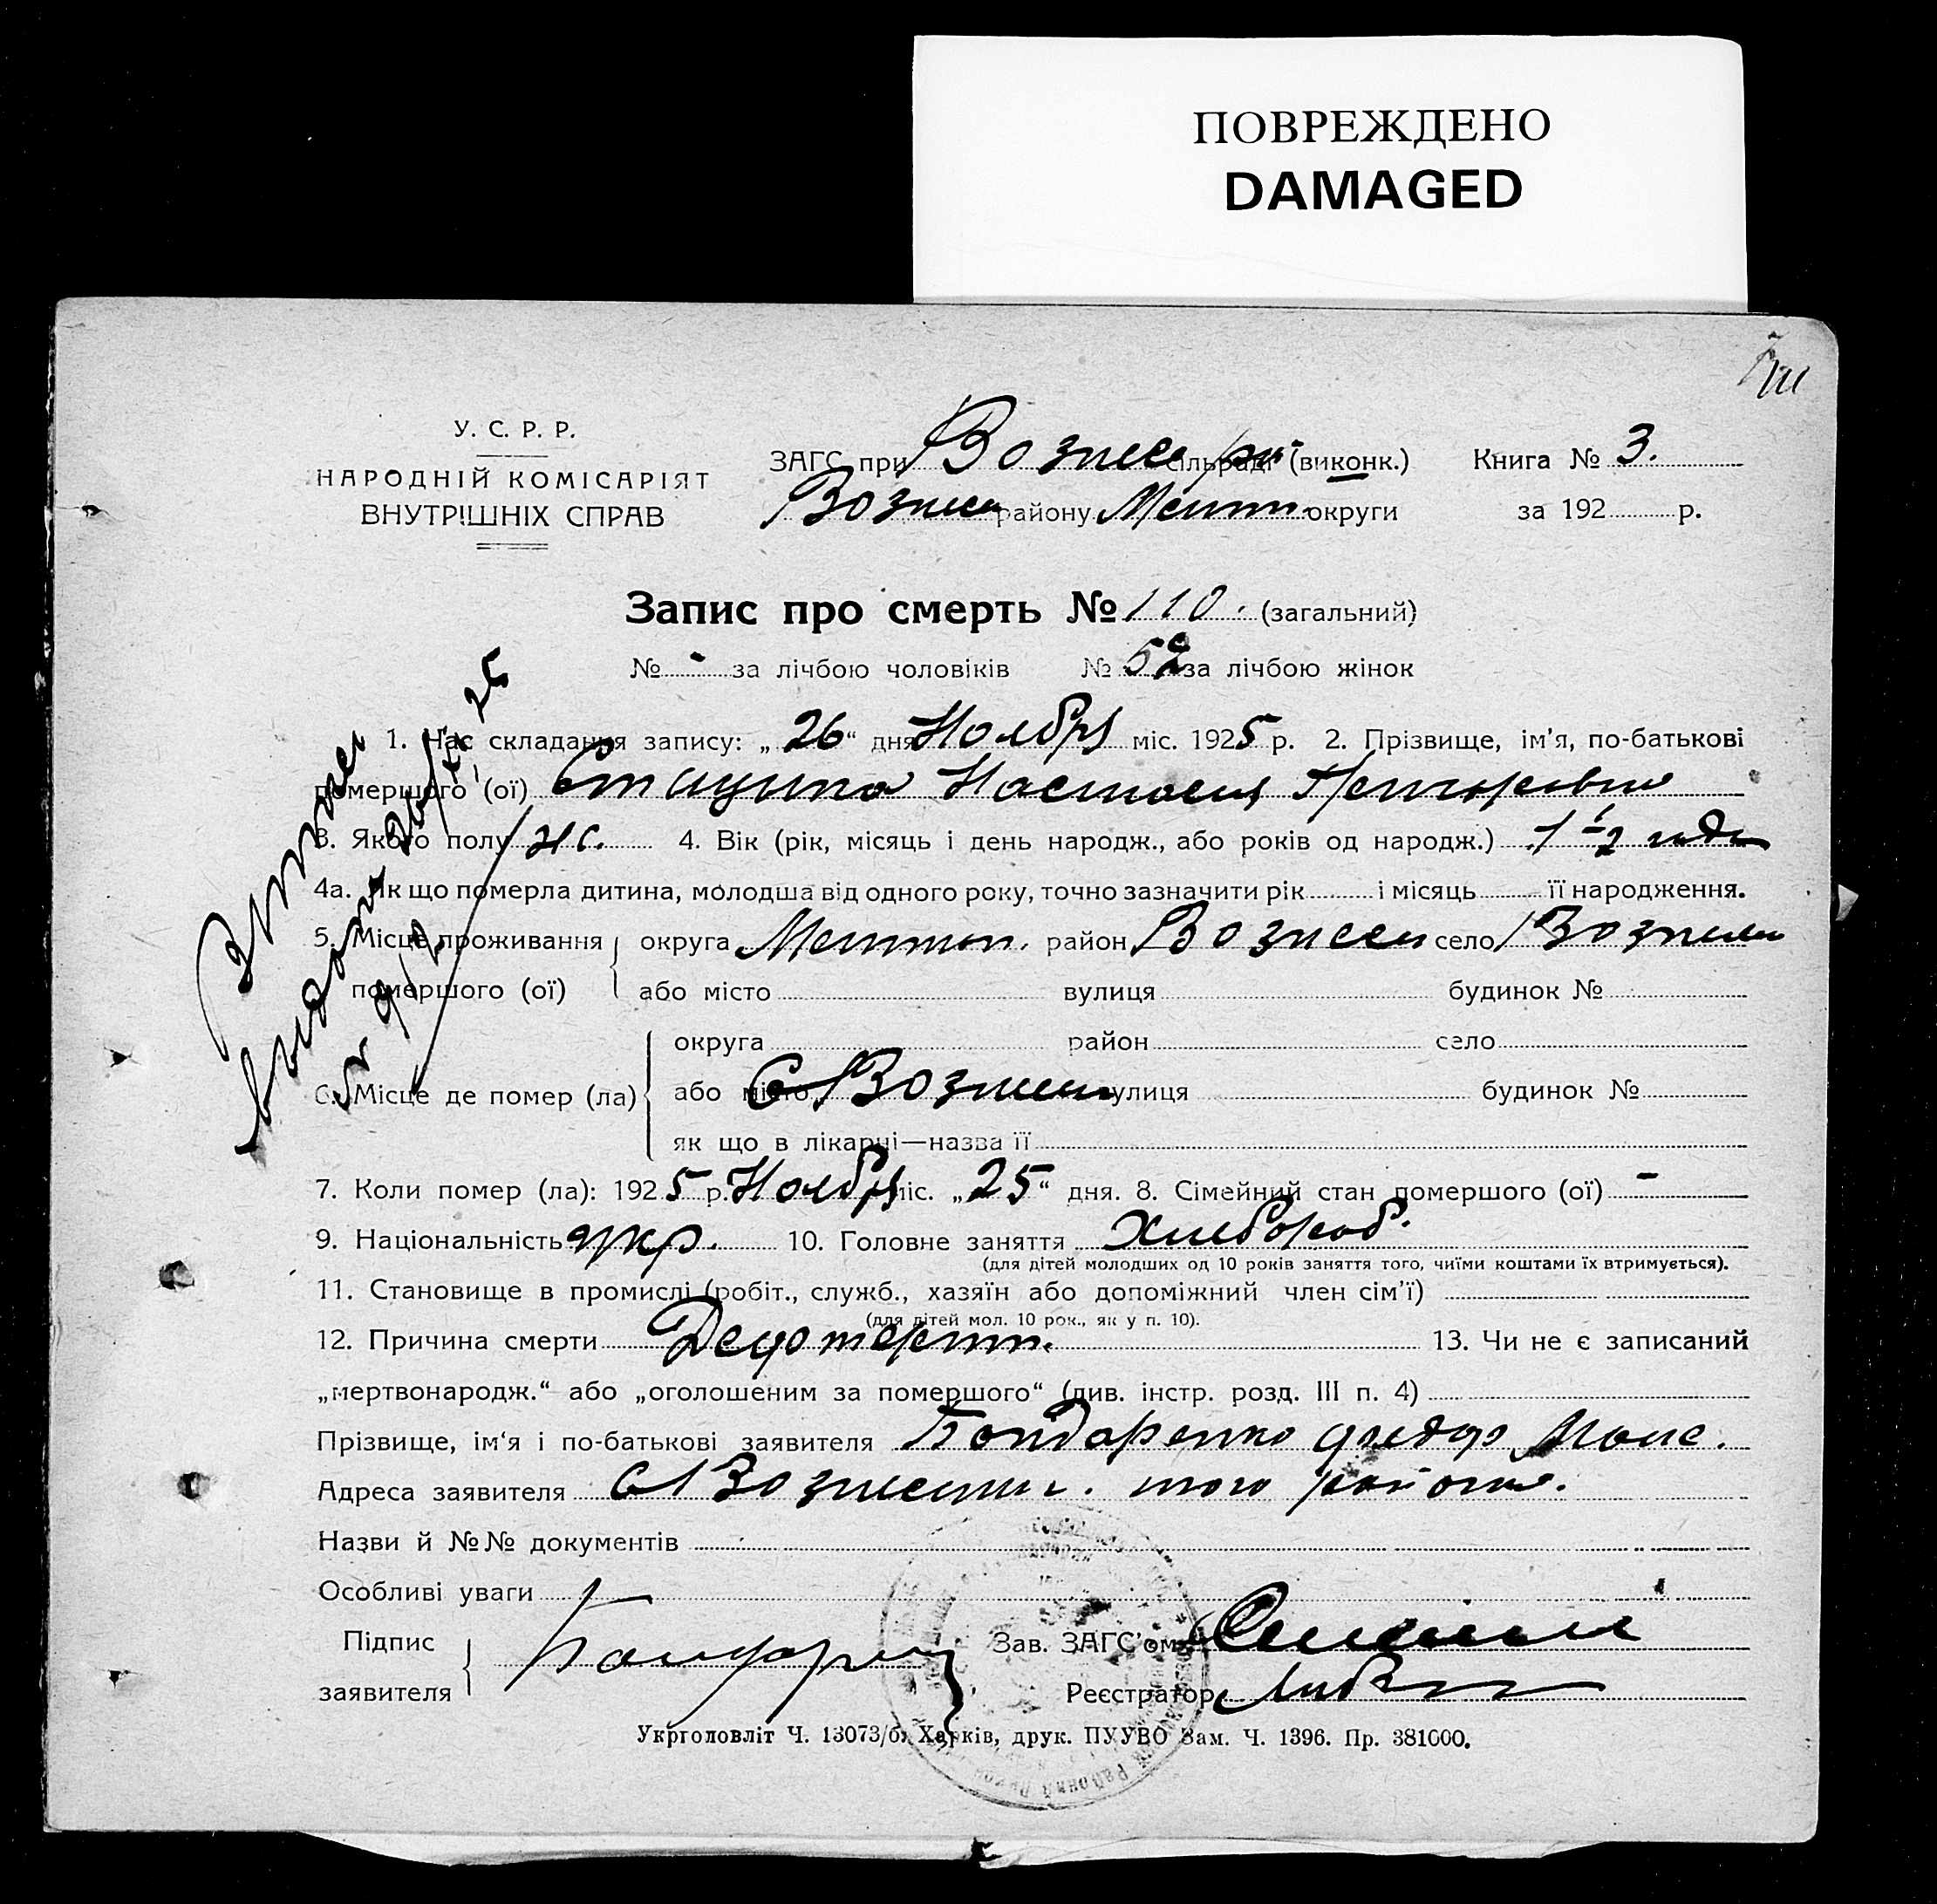 ПОВРЕЖДЕНО
DAMAGED
У. С. Р. Р.
НАРОДНІЙ КОМІСАРІЯТ
ВНУТРІШНІХ СПРАВ
ЗАГС при Вознесе сільраді (виконк.)
Вознесе району Мелит. округи
Книга № 3.
за 192 р.
Запис про смерть № 110. (загальний)
№ - за лічбою чоловіків № за лічбою жінок
1. Час складання запису: „ 26 “ дня Ноября міс. 1925 р. 2. Прізвище, ім’я, по-батькові
помершого (ої) Настасия
3. Якого полу ж. 4. Вік (рік, місяць і день народж., або років од народж.) 1 1/2 года
4а. Як що померла дитина, молодша від одного року, точно зазначити рік і місяць її народження.
5. Місце проживання помершого (ої) округа Мелитоп. район Вознесен село Вознесен
або місто вулиця будинок №
6. Місце де помер (ла) округа район село
або місто С Вознесен вулиця будинок №
як що в лікарні—назва її
7. Коли помер (ла): 1925 р. Ноября міс. „ 25 “ дня. 8. Сімейний стан помершого (ої) -
9. Національність укр. 10. Головне заняття Хлебороб.
(для дітей молодших од 10 років заняття того, чиїми коштами їх втримується).
11. Становище в промислі (робіт., служб., хазяїн або допоміжний член сім’ї)
(для дітей мол. 10 рок., як у п. 10).
12. Причина смерти 13. Чи не є записаний
„мертвонародж.“ або „оголошеним за помершого“ (див. інстр. розд. III п. 4)
Прізвище, ім‘я і по-батькові заявителя Бондаренко Федор
Адреса заявителя С Вознесенк. того района.
Назви й №№ документів
Особливі уваги
Підпис заявителя
Зав. ЗАГС’ом
Реєстратор
Укрголовліт Ч. 13073/б. Харків, друк. ПУУВО Зам. Ч. 1396. Пр. 381000.